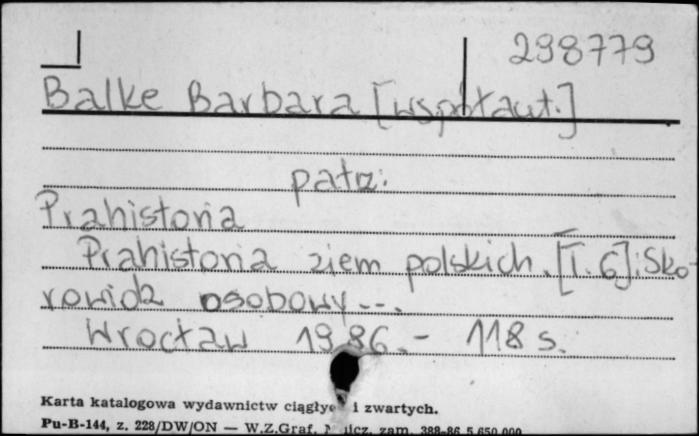 298779
Balke Barbara [współaut.]
patrz:
Prahistoria
Prahistoria ziem polskich. [T. 6]: Sko-
rowidz osobowy...
Wrocław 1986.- 118 s.
Karta katalogowa wydawnictw ciągłyc i zwartych.
Pu-B-144, z. 228/DW/ON — W.Z.Graf. zam. 388-86 5.650.000